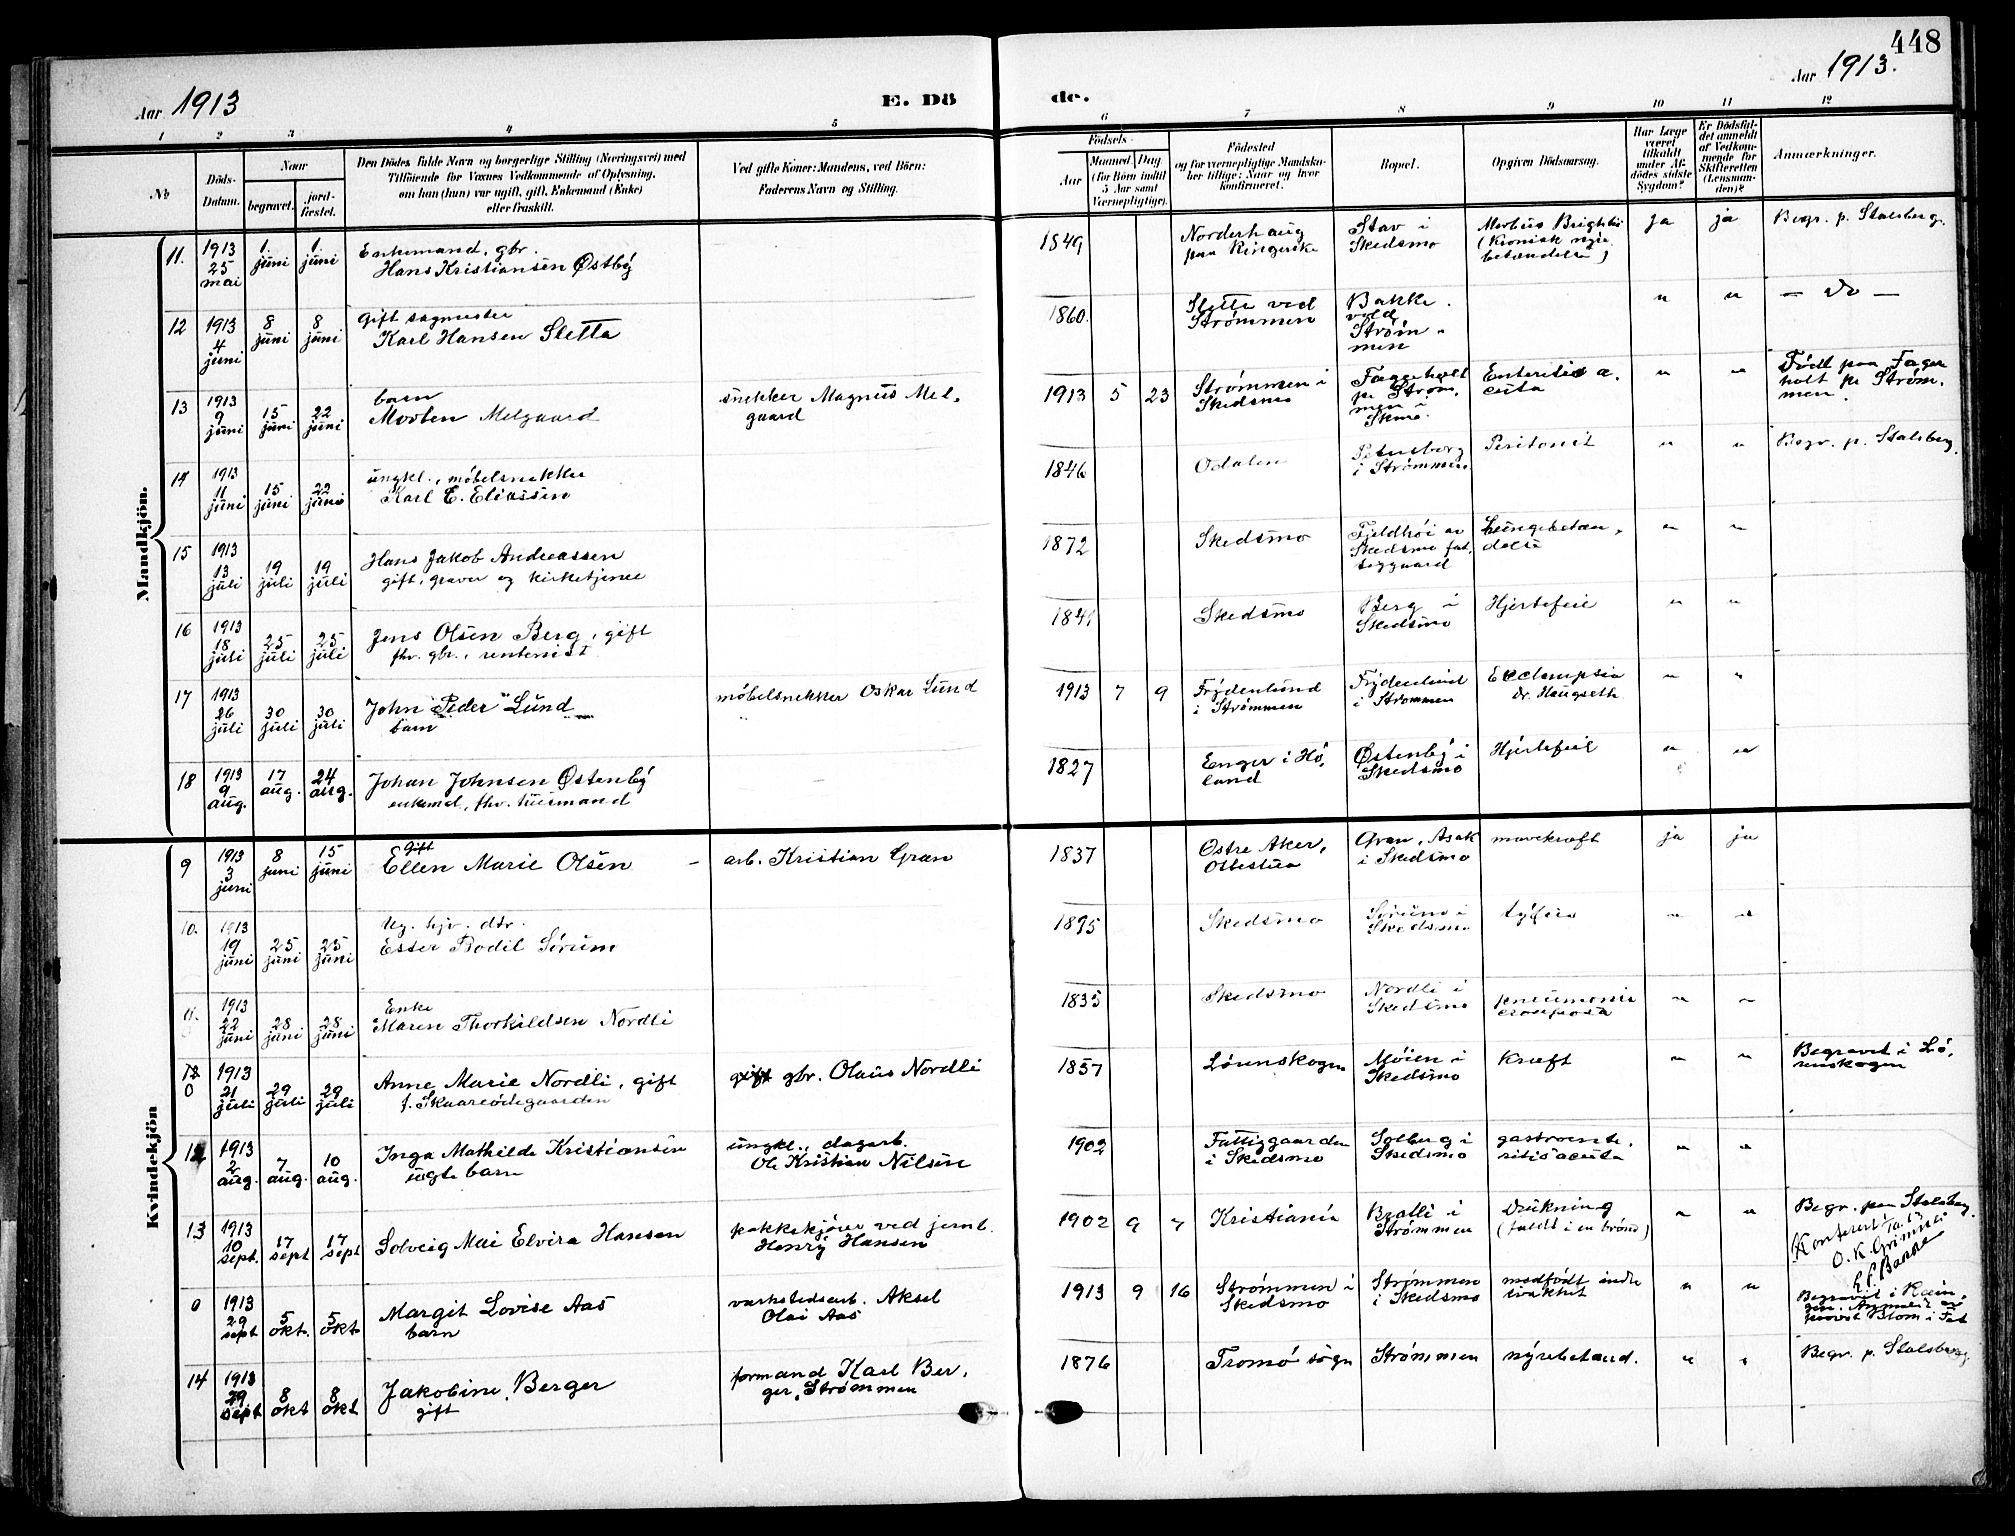 448
Aar 1913
E. Dö
de.
Aar 1913.
1 2 3 4 5 6 7 8 9 10 11 12
No
Döds-Datum.
Naar
begravet.
jord-fæstet.
Den Dödes fulde Navn og borgerlige Stilling (Næringsvei) med
Tilföiende for Voxnes Vedkommende af Oplysning,
om han (hun) var ugift, gift, Enkemand (Enke)
eller fraskilt.
Ved gifte Koner: Mandens, ved Börn:
Faderens Navn og Stilling.
Födsels-
Aar
Maaned Dag
(for Börn indtil
5 Aar samt
Værnepligtige).
Födested
og for værnepligtige Mandska-
ber tillige: Naar og hvor
konfirmeret.
Bopæl.
Opgiven Dödsaarsag.
Har Læge
været
tilkaldt
under Af-
dödes sidste
Sygdom?
Er Dödsfal-
det anmeldt
af Vedkom-
mende for
Skifteretten
(Lensman-
den)?
Anmærkninger.
Mandkjön.
11. 1913 25 mai 1. juni 1. juni Enkemand, gbr. Hans Kristiansen Østbý 1849 Norderhaug paa Ringerike Stav i Skedsmo Morbus Brightii (kronisk nyrebetændelse) ja ja Begr. p. Stalsberg.
12 1913 4 juni 8 juni 8 juni Gift sagmester Karl Hansen Sletta 1860. Sletta ved Strømmen Bakke ved Strømmen " " — Do —
13 1913 9 juni 15 juni 22 juni barn Morten Melgaard snekker Magnus Melgaard 1913 5 23 Strømmen i Skedsmo Faggerholt pr Strømmen i Skmo. Enteritis acuta " " Født paa Fagerholt pr Strømmen.
14 1913 11 juni 15 juni 22 juni ungkl., møbelsnekker Karl E. Eliassen 1846 Odalen Petersborg i Strømmen Peritonit " " Begr. p. Stalsberg
15 1913 13 juli 19 juli 19 juli Hans Jakob Andreassen gift, graver og kirketjener 1872 Skedsmo Fjeldhøi av Skedsmo fattiggaard Lungebetændelse " "
16 1913 18 juli 25 juli 25 juli Jens Olsen Berg, gift fhv. gbr., rentenist 1841 Skedsmo Berg i Skedsmo Hjertefeil " "
17 1913 26 juli 30 juli 30 juli John "Peder" Lund barn møbelsnekker Oskar Lund 1913 7 9 Frýdenlund i Strømmen Frýdenlund i Strømmen Ecclampsia dr. Haugseth " "
18 1913 9 aug. 17 aug. 24 aug. Johan Johnsen Østenbý enkemd, fhv. husmand 1827 Enger i Høland Østenbý i Skedsmo Hjertefeil " "
Kvindekjön
9 1913 3 juni 8 juni 15 juni gift Ellen Marie Olsen - arb. Kristian Gran 1837 Østre Aker, Gran, Asak i Skedsmo mavekræft ja ja
10. 1913 19 juni 25 juni 25 juni Ug. hjv. dtr. Ester Bodil Sørum 1895 Skedsmo Sørum i Skedsmo týfus " "
11. 1913 22 juni 28 juni 28 juni Enke Maren Thorkildsen Nordli 1835 Skedsmo Nordli i Skedsmo pneumonia crouposa " "
12 0 1913 21 juli 29 juli 29 juli Anne Marie Nordli, gift f. Skaareødegaarden gift gbr. Olaus Nordli 1857 Lørenskogen Møien i Skedsmo Kræft " " Begravet i Lørenskogen
12 1913 2 aug. 7 aug. 10 aug. Inga Mathilde Kristiansen uegte barn ungkl., dagarb. Ole Kristian Nilsen 1902 Fattiggaarden i Skedsmo Solberg i Skedsmo gastroenteritis acuta " "
13 1913 10 sept. 17 sept 17 sept Solveig Mai Elvira Hansen pakkekjører ved jernb. Henrý Hansen 1902 9 7 Kristiania Bratli i Strømmen Drukning (faldt i en brønd) " " Begr. paa Stalsberg.
(Konferert O. K. Grimnes
0 1913 29 sept 5 okt. 5 okt. Margit Lovise Aas barn værkstedsarb. Aksel Olai Aas 1913 9 16 Strømmen i Skedsmo Strømmen i Skedsmo medfødt indre svakhet " " Begravet i av provst Blom i Fet
14 1913 29 sept 8 okt 8 okt Jakobine Berger gift formand Karl Berger, Strømmen 1876 Tromø sogn Strømmen nýrebetænd. " " Begr. p. Stalsberg